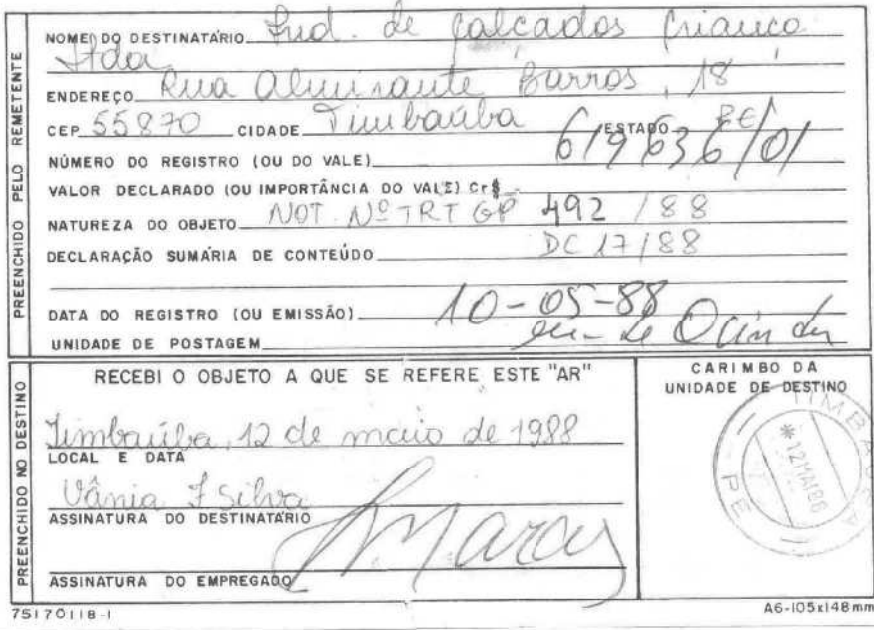 PREENCHIDO PELO REMETENTE
NOME DO DESTINATÁRIO Ind. de Calçados Criança
Ltda
ENDEREÇO Rua Almirante Barros, 18
CEP 55870 CIDADE Timbaúba ESTADO PE
NÚMERO DO REGISTRO (OU DO VALE) 619636/01
VALOR DECLARADO (OU IMPORTÂNCIA DO VALE) Cr$
NATUREZA DO OBJETO NOT. Nº TRT GP 492 / 88
DECLARAÇÃO SUMÁRIA DE CONTEÚDO DC 17/88
DATA DO REGISTRO (OU EMISSÃO) 10-05-88
UNIDADE DE POSTAGEM
PREENCHIDO NO DESTINO
RECEBI O OBJETO A QUE SE REFERE ESTE "AR"
Timbaúba, 12 de maio de 1988
LOCAL E DATA
Vânia F Silva
ASSINATURA DO DESTINATÁRIO
ASSINATURA DO EMPREGADO
CARIMBO DA
UNIDADE DE DESTINO
TIMBAÚBA
*12MAI88
PE
75170118-1
A6-105x148mm